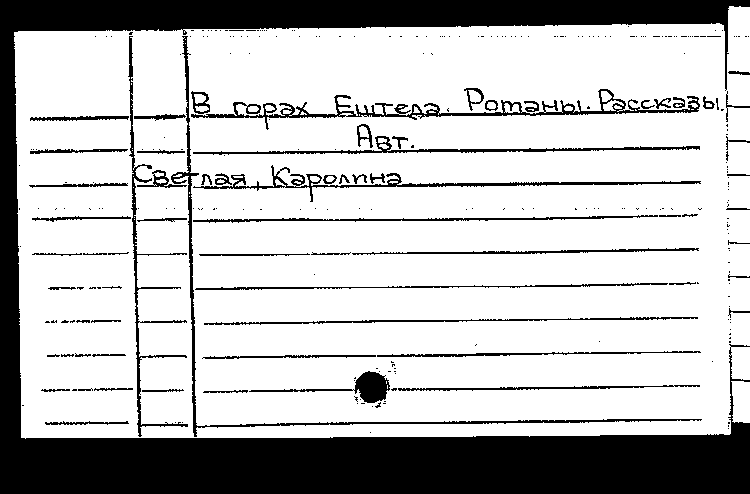 В горах Ештеда. Романы. Рассказы.
Авт.
Светлая, Каролина